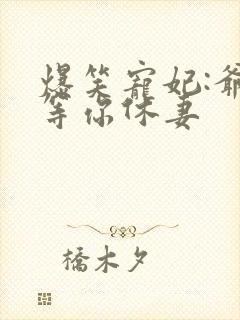 爆笑寵妃:爺
等你休妻
橋木夕